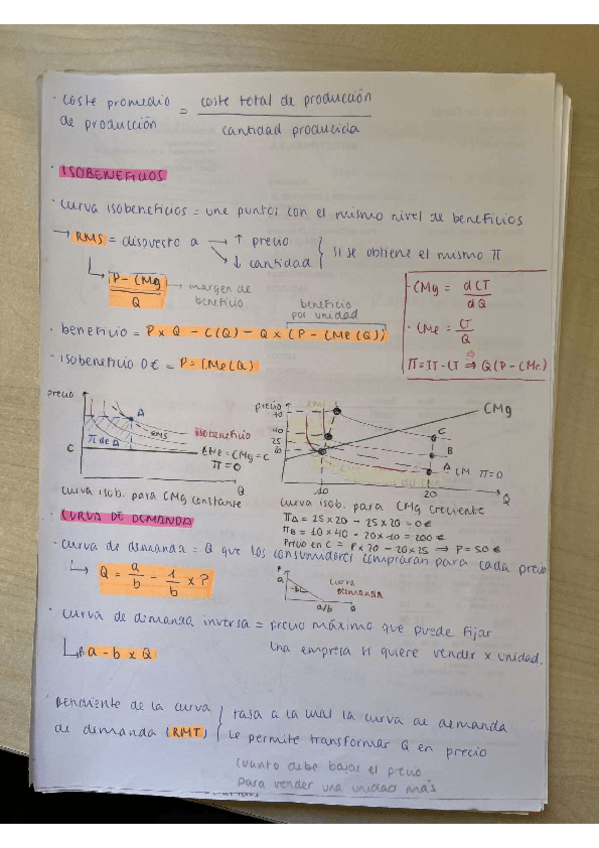 · coste promedio de producción = coste total de producción / cantidad producida
· ISOBENEFICIOS
· curva isobeneficios = une puntos con el mismo nivel de beneficios
→ RMS = dispuesto a → ↑ precio
→ ↓ cantidad
si se obtiene el mismo π
P - CMg / Q → margen de beneficio
· CMg = dCT / dQ
· CMe = CT / Q
π = IT - CT ⇒ Q(P - CMe)
beneficio por unidad
· beneficio = P × Q - C(Q) - Q × (P - CMe(Q))
· isobeneficio 0€ = P = CMe(Q)
precio
A
RMS
isobeneficio
π de A
C
CMe = CMg = C
π = 0
Q
curva isob. para CMg constante
precio
70
40
25
CMg
C
B
A
π = 0
10
20
Q
curva isob. para CMg creciente
πA = 25 × 20 - 25 × 20 = 0€
Precio en C = P × 20 - 20 × 25 ⇒ P = 50€
· CURVA DE DEMANDA
· curva de demanda = Q que los consumidores comprarán para cada precio
→ Q = a/b - 1/b × P
P
a
-b
curva demanda
a/b
Q
· curva de demanda inversa = precio máximo que puede fijar
una empresa si quiere vender x unidad.
a - b × Q
· pendiente de la curva
de demanda (RMT)
tasa a la cual la curva de demanda
le permite transformar Q en precio
cuanto debe bajar el precio
para vender una unidad más